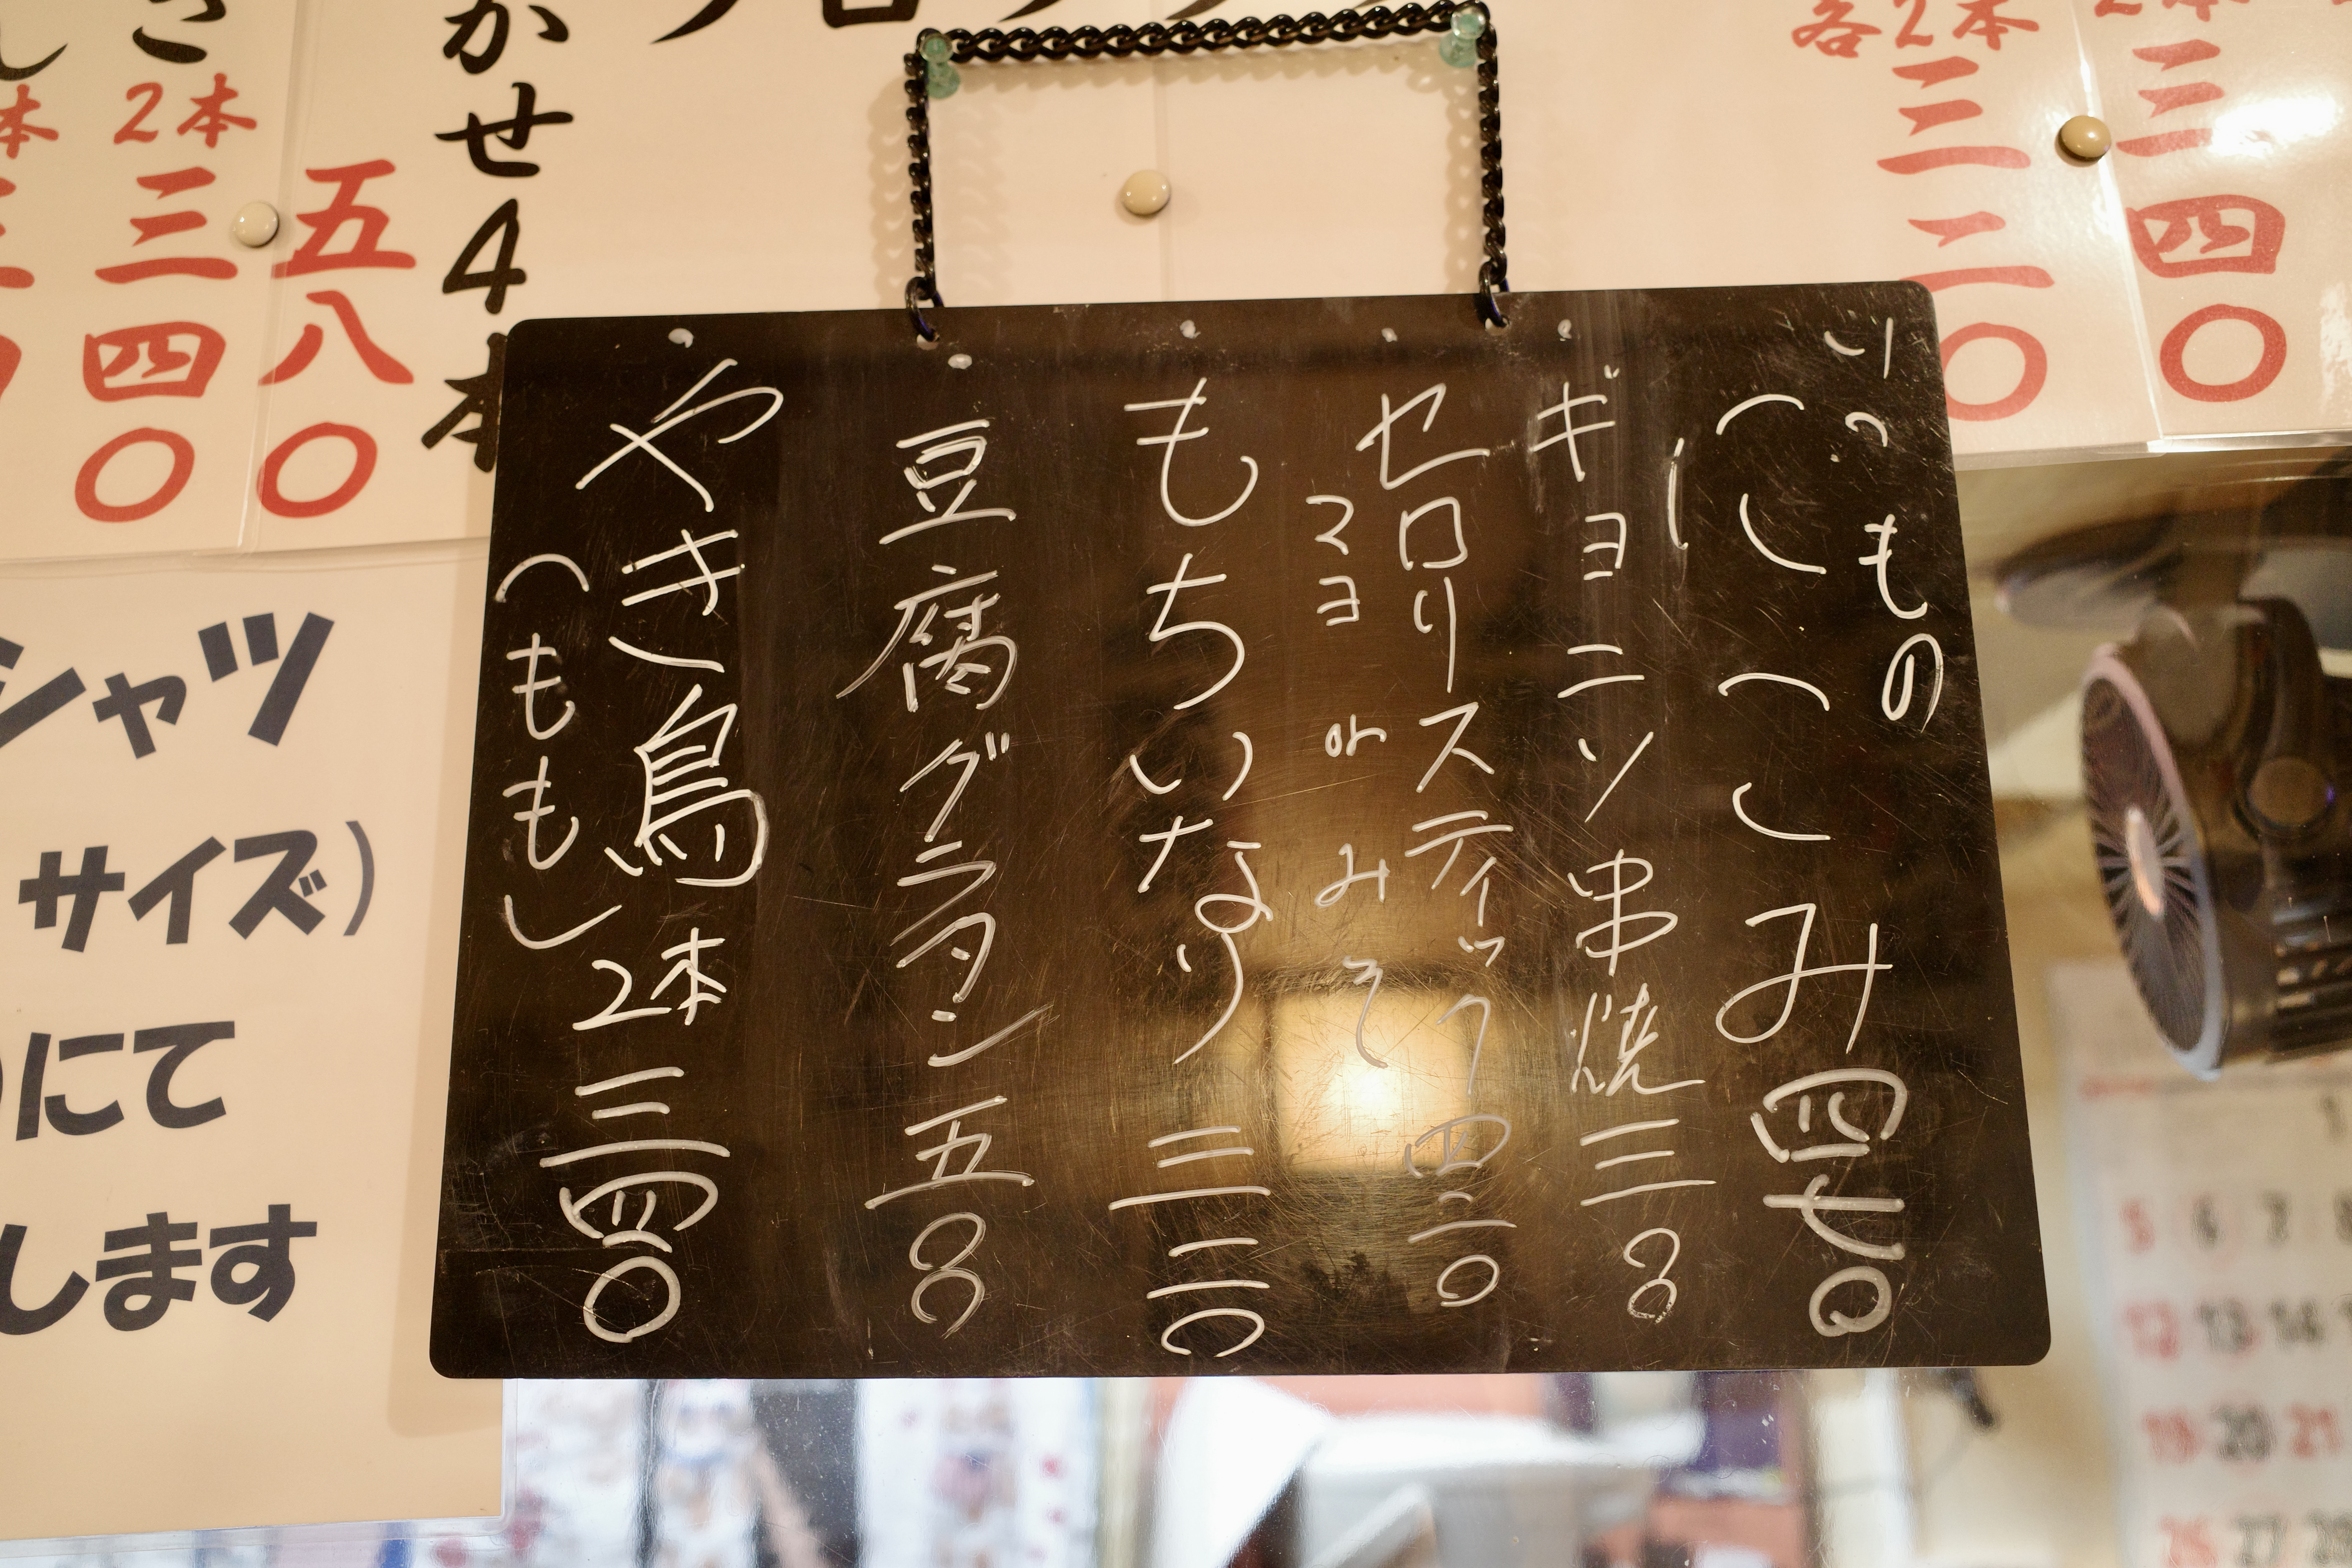 2本 三四〇
各2本 三二〇
いつもの
にこみ 四七〇
ギョニソ串焼 三〇〇
セロリスティック 四二〇
マヨ or みそ
もちいなり 三二〇
豆腐グラタン 五〇〇
やき鳥 2本 三四〇
(もも)
かせ4本
五八〇
さ 2本 三四〇
シャツ
サイズ)
にて
します
5 6 7
12 13 14
19 20 21
26 27 28